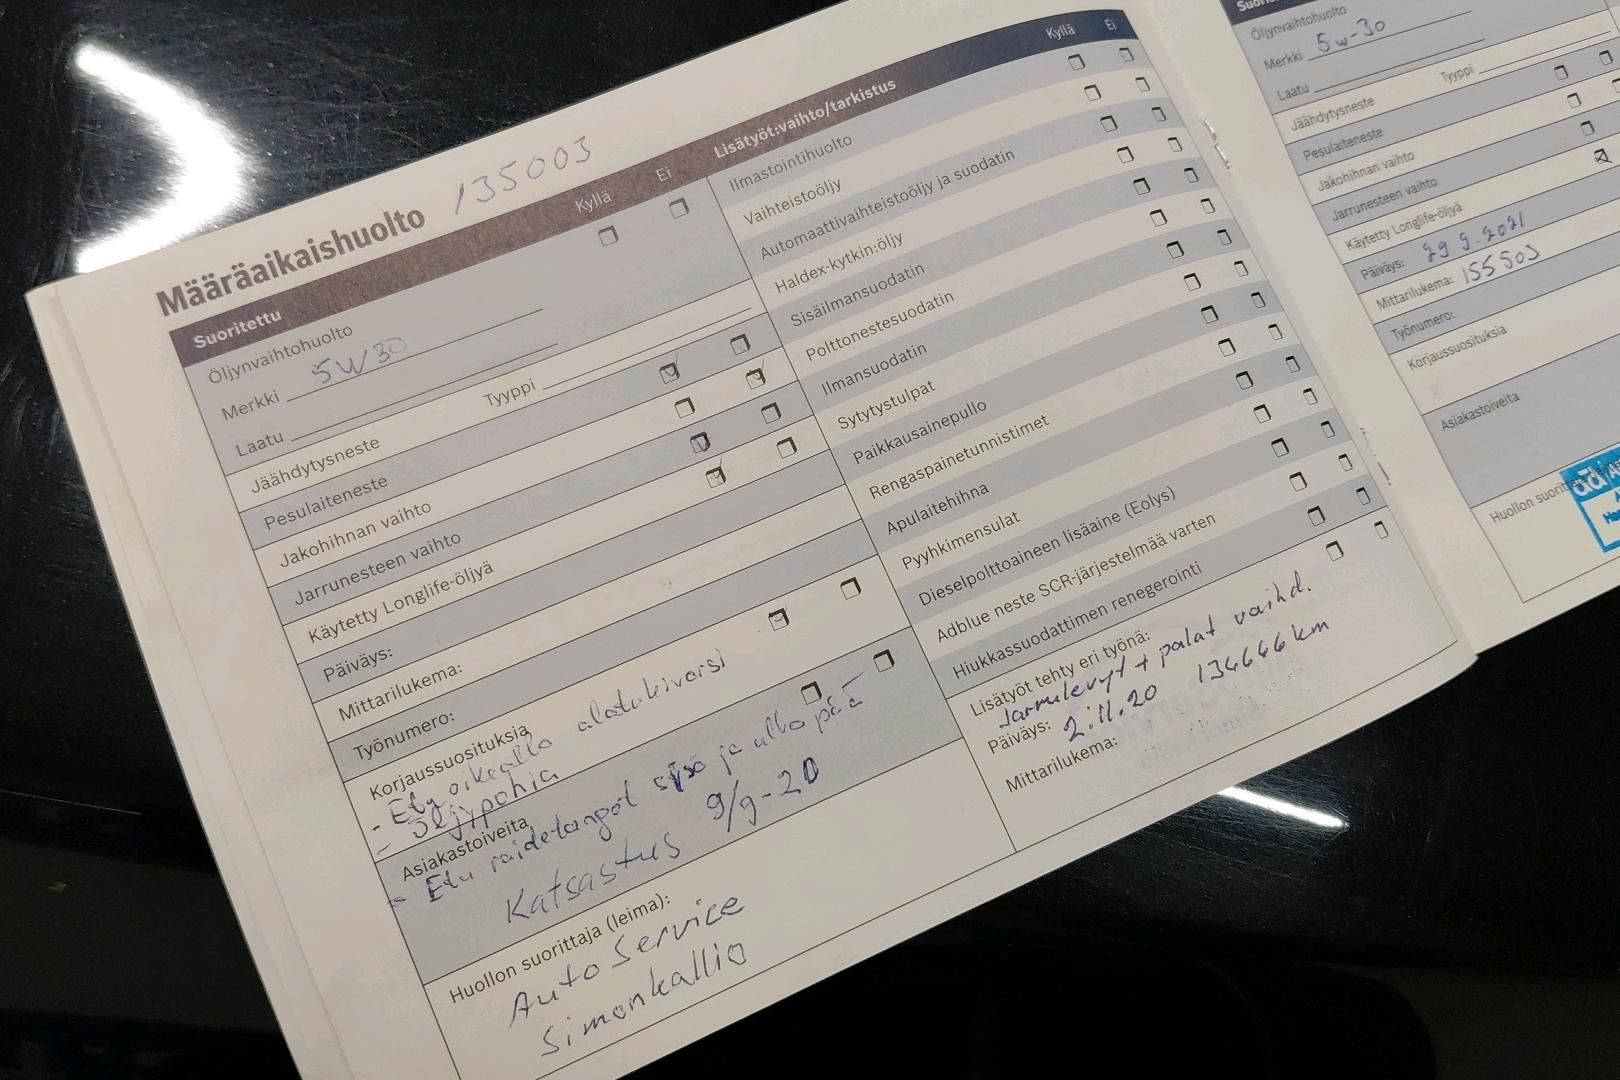 Määräaikaishuolto 135003
Suoritettu Kyllä Ei
Öljynvaihtohuolto
Merkki 5W30
Laatu Tyyppi
Jäähdytysneste
Pesulaiteneste
Jakohihnan vaihto
Jarrunesteen vaihto
Käytetty Longlife-öljyä
Päiväys:
Mittarilukema:
Työnumero:
Korjaussuosituksia
- Etu oikealla alatukivarsi
- Öljypohja
Asiakastoiveita
- Etu raidetangot sisä ja ulko pää
Katsastus 9/9-20
Huollon suorittaja (leima):
Auto Service
Simonkallio
Lisätyöt:vaihto/tarkistus Kyllä Ei
Ilmastointihuolto
Vaihteistoöljy
Automaattivaihteistoöljy ja suodatin
Haldex-kytkin:öljy
Sisäilmansuodatin
Polttonestesuodatin
Ilmansuodatin
Sytytystulpat
Paikkausainepullo
Rengaspainetunnistimet
Apulaitehihna
Pyyhkimensulat
Dieselpolttoaineen lisäaine (Eolys)
Adblue neste SCR-järjestelmää varten
Hiukkassuodattimen renegerointi
Lisätyöt tehty eri työnä:
Jarrulevyt + palat vaihd.
Päiväys: 2.11.20 134646 km
Mittarilukema:
Öljynvaihtohuolto
Merkki 5w-30
Laatu Tyyppi
Jäähdytysneste
Pesulaiteneste
Jakohihnan vaihto
Jarrunesteen vaihto
Käytetty Longlife-öljyä
Päiväys: 29.9.2021
Mittarilukema: 155503
Työnumero:
Korjaussuosituksia
Asiakastoiveita
Huollon suorit
ad